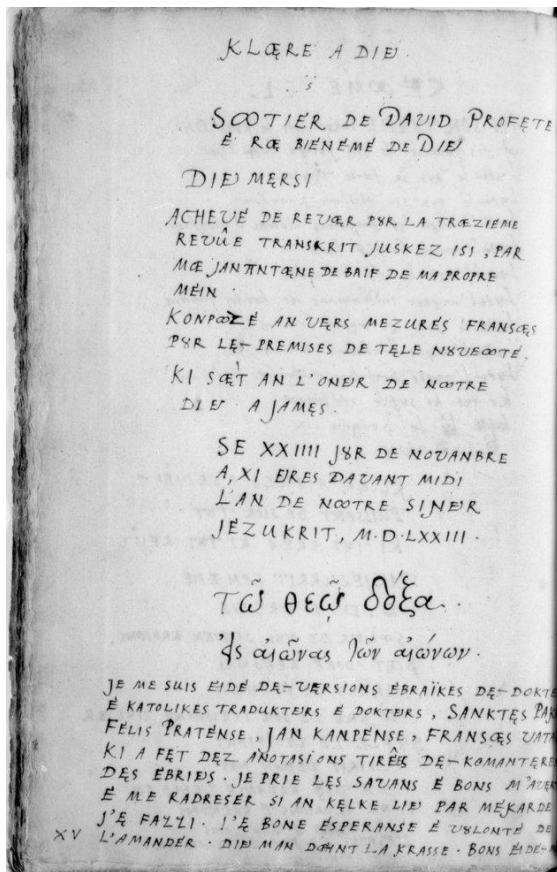 KLŒRE A DIEU
SꝎTIER DE DAVID PROFĘTE
É RŒ BIENÉMÉ DE DIEU
DIEU MĘRSI
ACHEVÉ DE REVŒR PȢR LA TRŒZIEME
REVÛE TRANSKRIT JUSKEZ ISI, PAR
MŒ JANANTŒNE DE BAIF DE MA PROPRE
MÉIN.
KONPꝎZÉ AN VERS MEZURÉS FRANSŒS
PȢR LĘ-PREMISES DE TĘLE NȢVEꝎTÉ.
KI SŒT AN L'ONEUR DE NꝎTRE
DIEU. A JAMĘS.
SE XXIIII JȢR DE NOVANBRE
A, XI EURES DAVANT MIDI
L'AN DE NꝎTRE SIJNEUR
JÉZUKRIT, M.D.LXXIII.
τῶ θεῷ δόξα.
εἰς αἰῶνας τῶν αἰώνων.
JE ME SUIS ÉIDÉ DĘ-VERSIONS ÉBRAÏKES DĘ-DOKTE
É KATOLIKES TRADUKTEURS É DOKTEURS, SANKTĘS PAK
FÉLIS PRATÉNSE, JAN KANPÉNSE, FRANSŒS VATA
KI A FĘT DĘZ ANOTASIONS TIRÉES DĘ-KOMANTĘRE
DĘS ÉBRIEUS. JE PRIE LĘS SAVANS É BONS M'AVER
É ME RADRESER SI AN KĘLKE LIEU PAR MÉKARDE
J'Ę FALLI. J'Ę BONE ÉSPERANSE É VȢLONTÉ DE
XV L'AMANDER. DIEU M'AN DOINT LA KRASSE. BONS ÉIDÉ-M